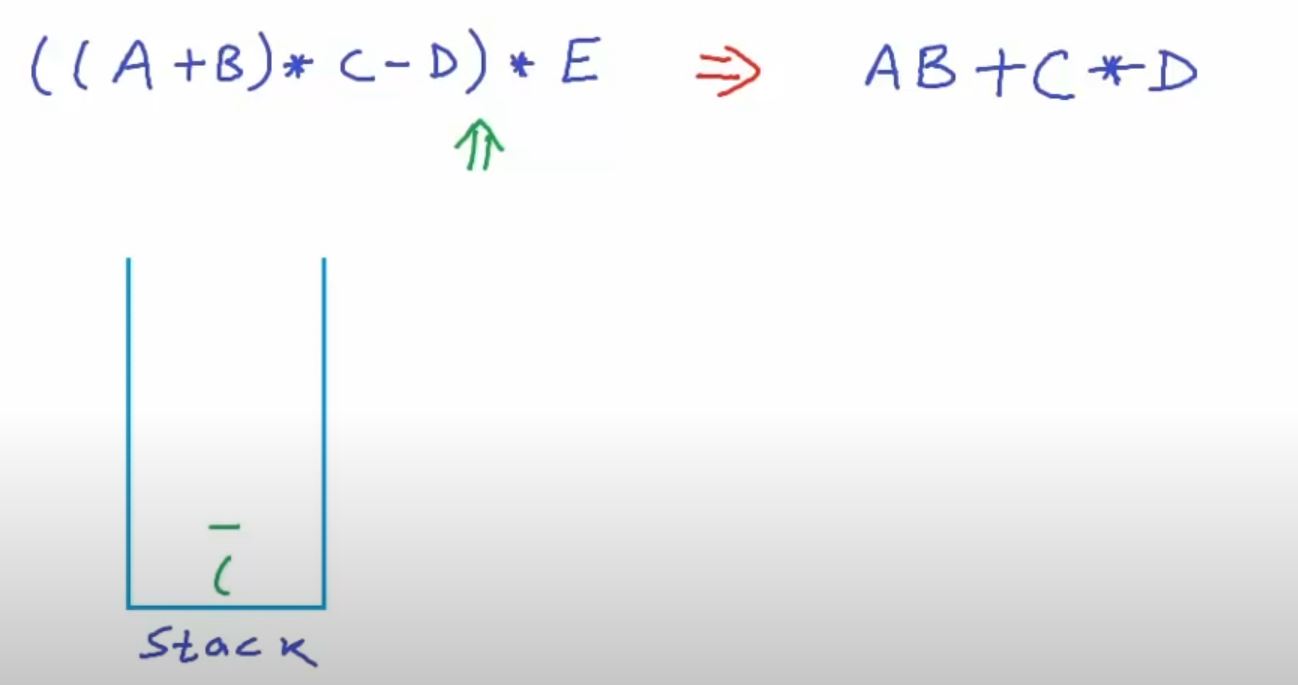 ((A+B)* C-D) * E ⇒ AB+C*D
⇑
-
(
Stack